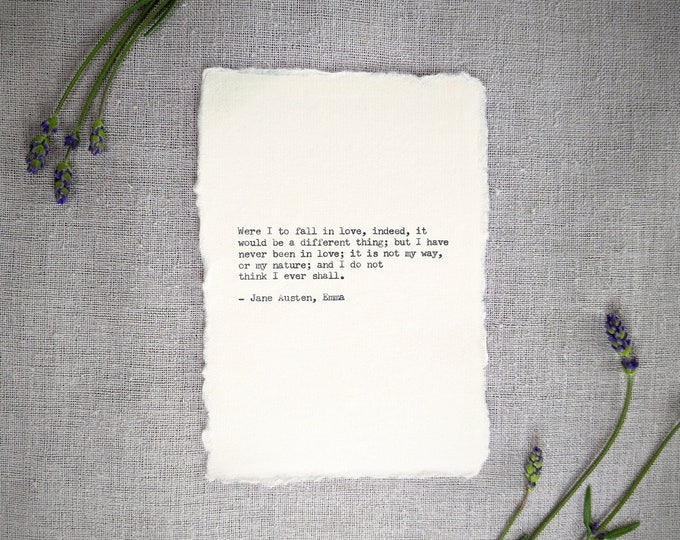 Were I to fall in love, indeed, it
would be a different thing; but I have
never been in love; it is not my way,
or my nature; and I do not
think I ever shall.
- Jane Austen, Emma